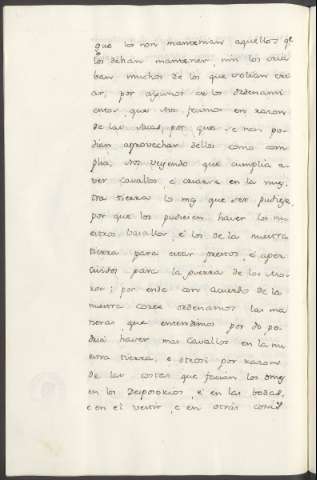 que los non mantenian aquellos qe
los debian mantener, nin los cria
ban muchos de los que solian cri
ar, por algunos de los ordenami
entos, que Nos fecimos en razon
de las sacas, por que se non po
dian aprovechar dellos como com
plia, Nos veyendo que cumplia a
ver cavallos, e criarse en la nues
tra tierra lo mas que ser pudiese,
por que los pudiesen haver los nu
estros Vasallos, e los de la nuestra
tierra para estar prestos, e aper
cividos para la guerra de los Mo
ros; por ende con acuerdo de la
nuestra corte ordenamos las ma
neras, que entendimos por do po
dria haver mas cavallos en la nu
estra tierra, e otrosi por razon
de las costas que facian los omes
en los Desposorios, e en las bodas,
e en el vestir, e en otras cosas